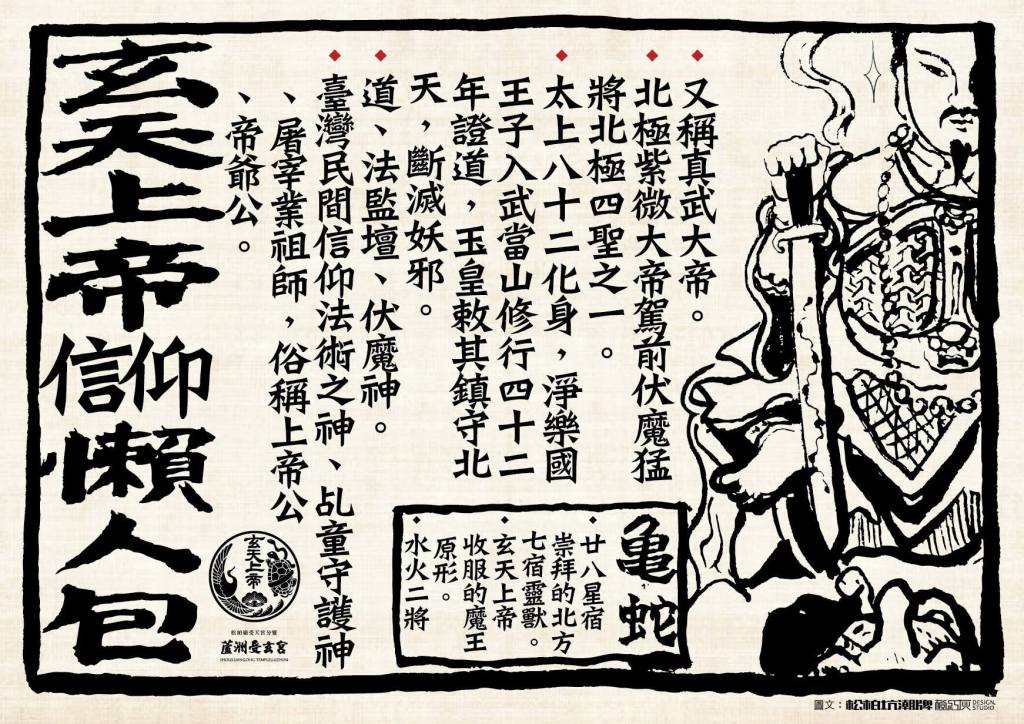 玄天上帝信仰懶人包
又稱真武大帝。
北極紫微大帝駕前伏魔猛
將北極四聖之一。
太上八十二化身，淨樂國
王子入武當山修行四十二
年證道，玉皇敕其鎮守北
天，斷滅妖邪。
道、法監壇、伏魔神。
臺灣民間信仰法術之神、乩童守護神
、屠宰業祖師，俗稱上帝公
、帝爺公。
亀蛇
廿八星宿
崇拜的北方
七宿靈獸。
玄天上帝
收服的魔王
原形。
水火二將
玄天上帝
松柏嶺受天宮分靈
蘆洲受玄宮
圖文：松柏坑潮牌
DESIGN.
STUDIO